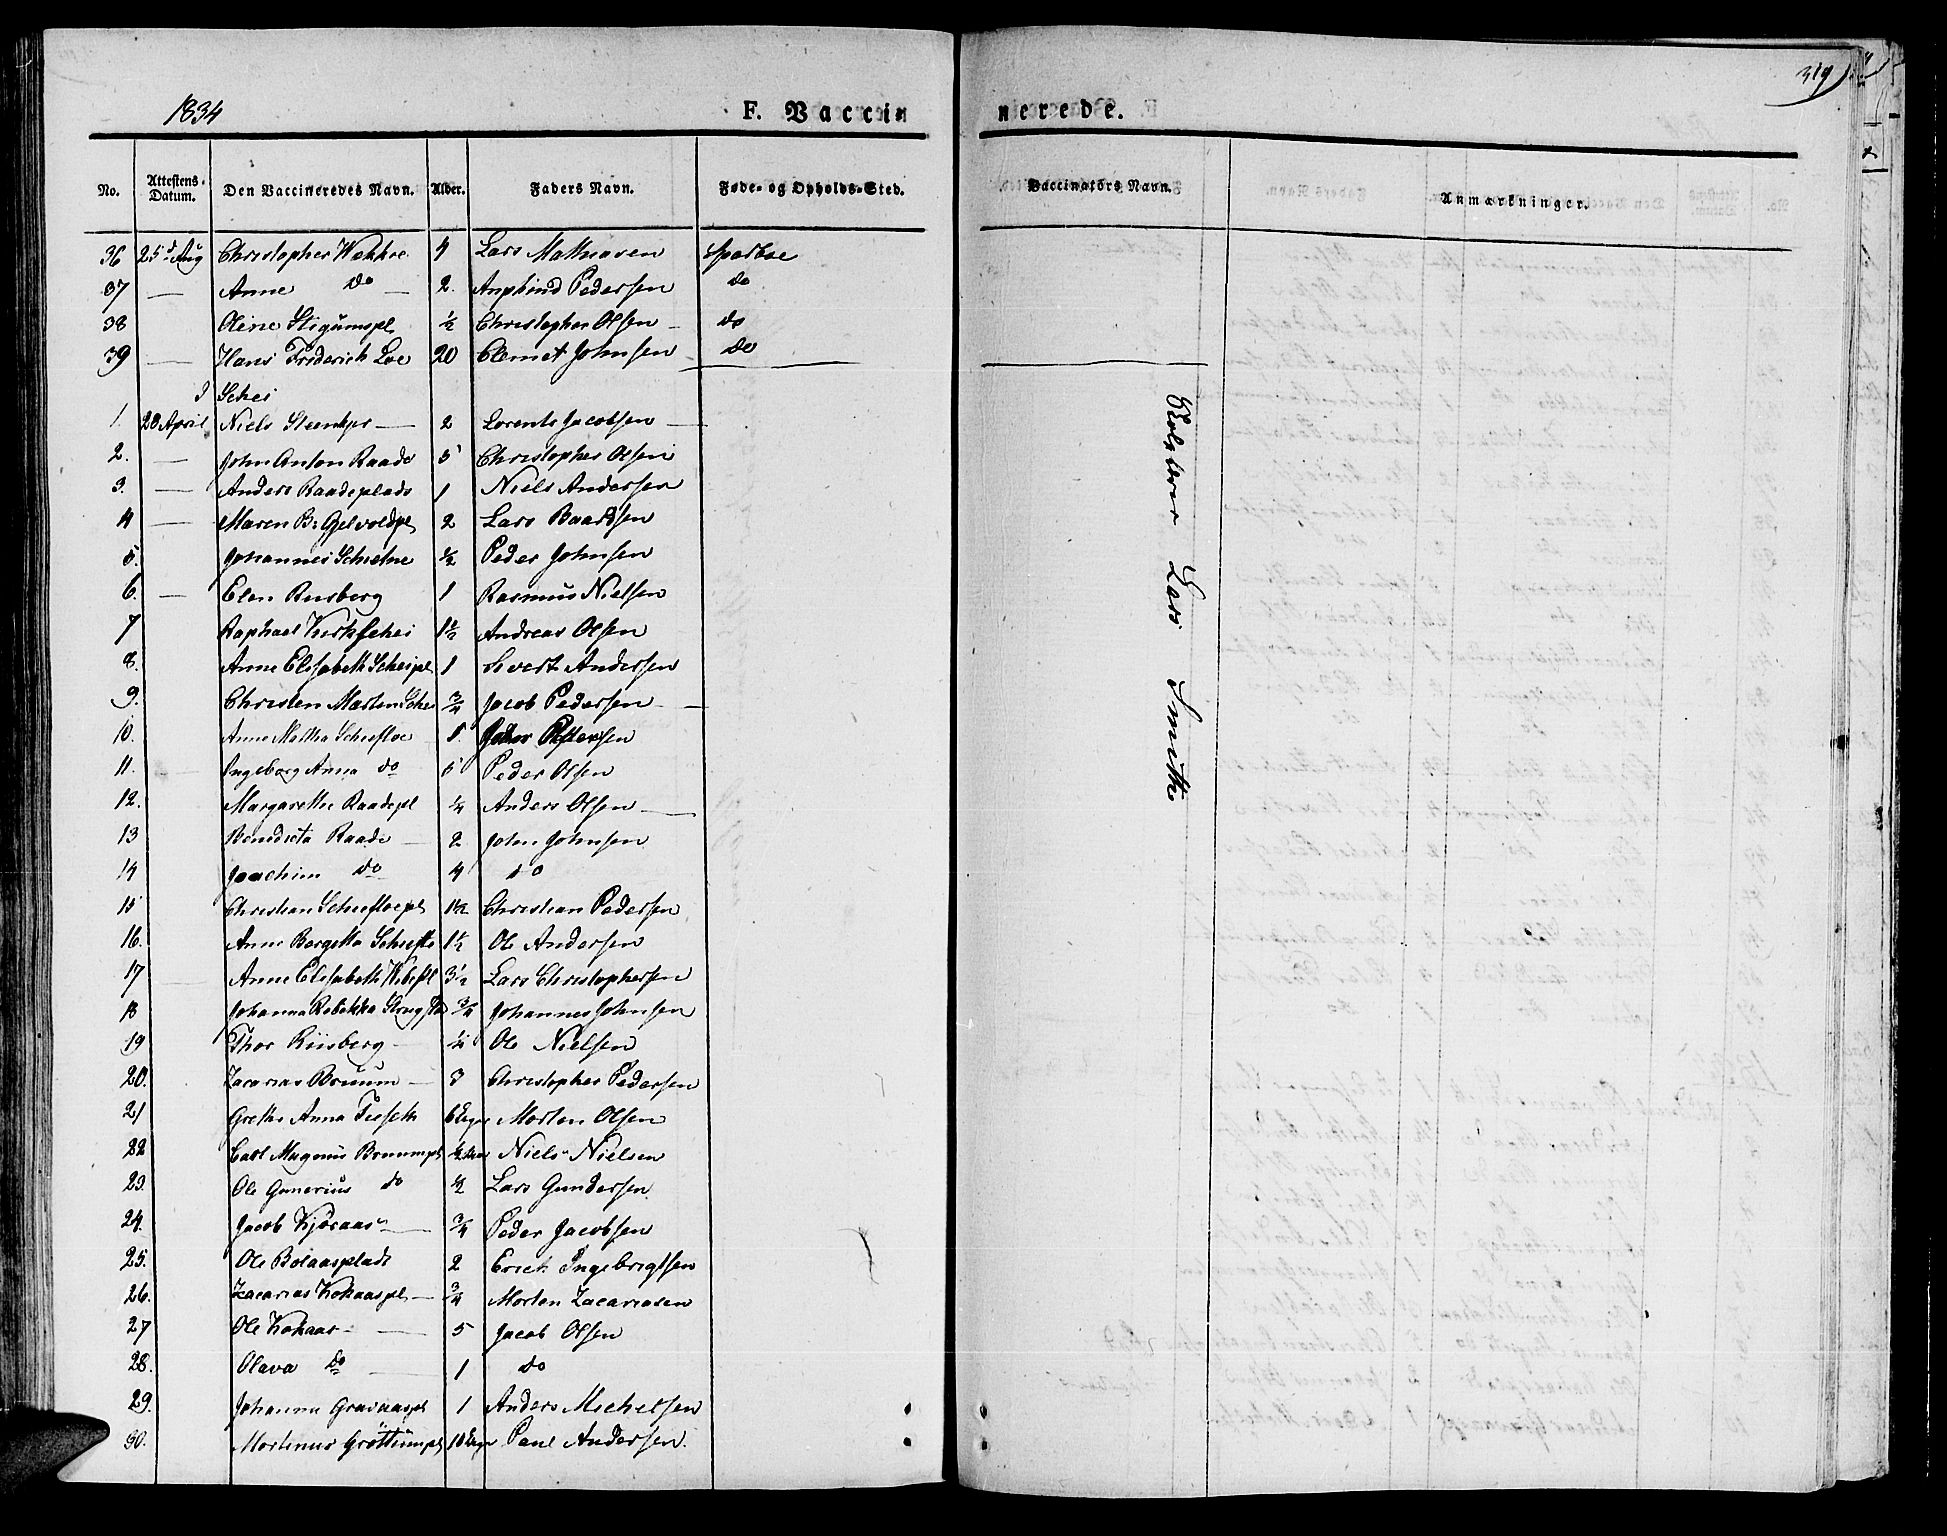 1834
F. Vaccinerede.
319
No.
Attestens-Datum.
Den Vaccineredes Navn.
Alder.
Faders Navn.
Føde- og Opholds-Sted.
Vaccinatørs Navn.
Anmærkninger.
36 25d Aug Christopher 4 Lars Mathiasen Sparboe
37 — Anne do — 2. Arnphind Pedersen do
38 Oline Stigumspl 1/2 Christopher Olsen — do
39 — Hans Friderich Loe 20 Clemet Johnsen do
Schei
1. 28 April Niels Steenkjer — 2 Lorents Jacobsen —
2. — John Anton Raade 5 Christopher Olsen
3. — Anders Raadeplads 1 Niels Andersen
4 — Maren B: Gelvoldpl 2 Lars Baardsen
5. Johannes Schielne 1/2 Peder Johnsen
6. — Elen Rusberg 1 Rasmus Nielsen
7 Raphael Kirkschei 1 1/2 Andreas Olsen
8. Anne Elisabeth Scheipl 1 Sivert Andersen
9. Christen Morten Schei 3/4 Jacob Pedersen —
10. Anne Martha Schiefloe 8. Peder Pedersen
11. Ingeborg Anna do 5 Peder Olsen
12. Margarethe Raadepl 1/4 Anders Olsen —
13 Benedicta Raade — 2 John Johnsen
14 Joachim do 4 do
15 Christian Schiefloepl 1 1/2 Christian Pedersen
16. Anne Bergitta Schieflo 1 1/2 Ole Andersen
17 Anne Elisabeth Vibespl 3 1/2 Lars Christophersen
18 Johanna Rebekka 3/4 Johannes Johnsen
19 Thor Riisberg — 1/4 Ole Nielsen
20. Zacarias Bruum — 3 Christopher Pedersen
21 Grethe Anna 6 Uger Morten Olsen
22 Carl Magnus Bruumpl 1/2 Niels Nielsen
23. Ole Gunerius do 1/2 Lars Gundersen
24. Jacob Kjøraas — 3/4 Peder Jacobsen
25. Ole Bolaasplads 2 Erich Ingebrigtsen
26. Zacarias Kokaaspl — 3/4 Morten Zacariasen
27 Ole Kokaas — 5 Jacob Olsen
28. Olava do — 1 do
29. Johanna Gravaaspl 1 Anders Michelsen
30. Mortinus Grøttumpl 10 Uger Paul Andersen.
Lars Smith